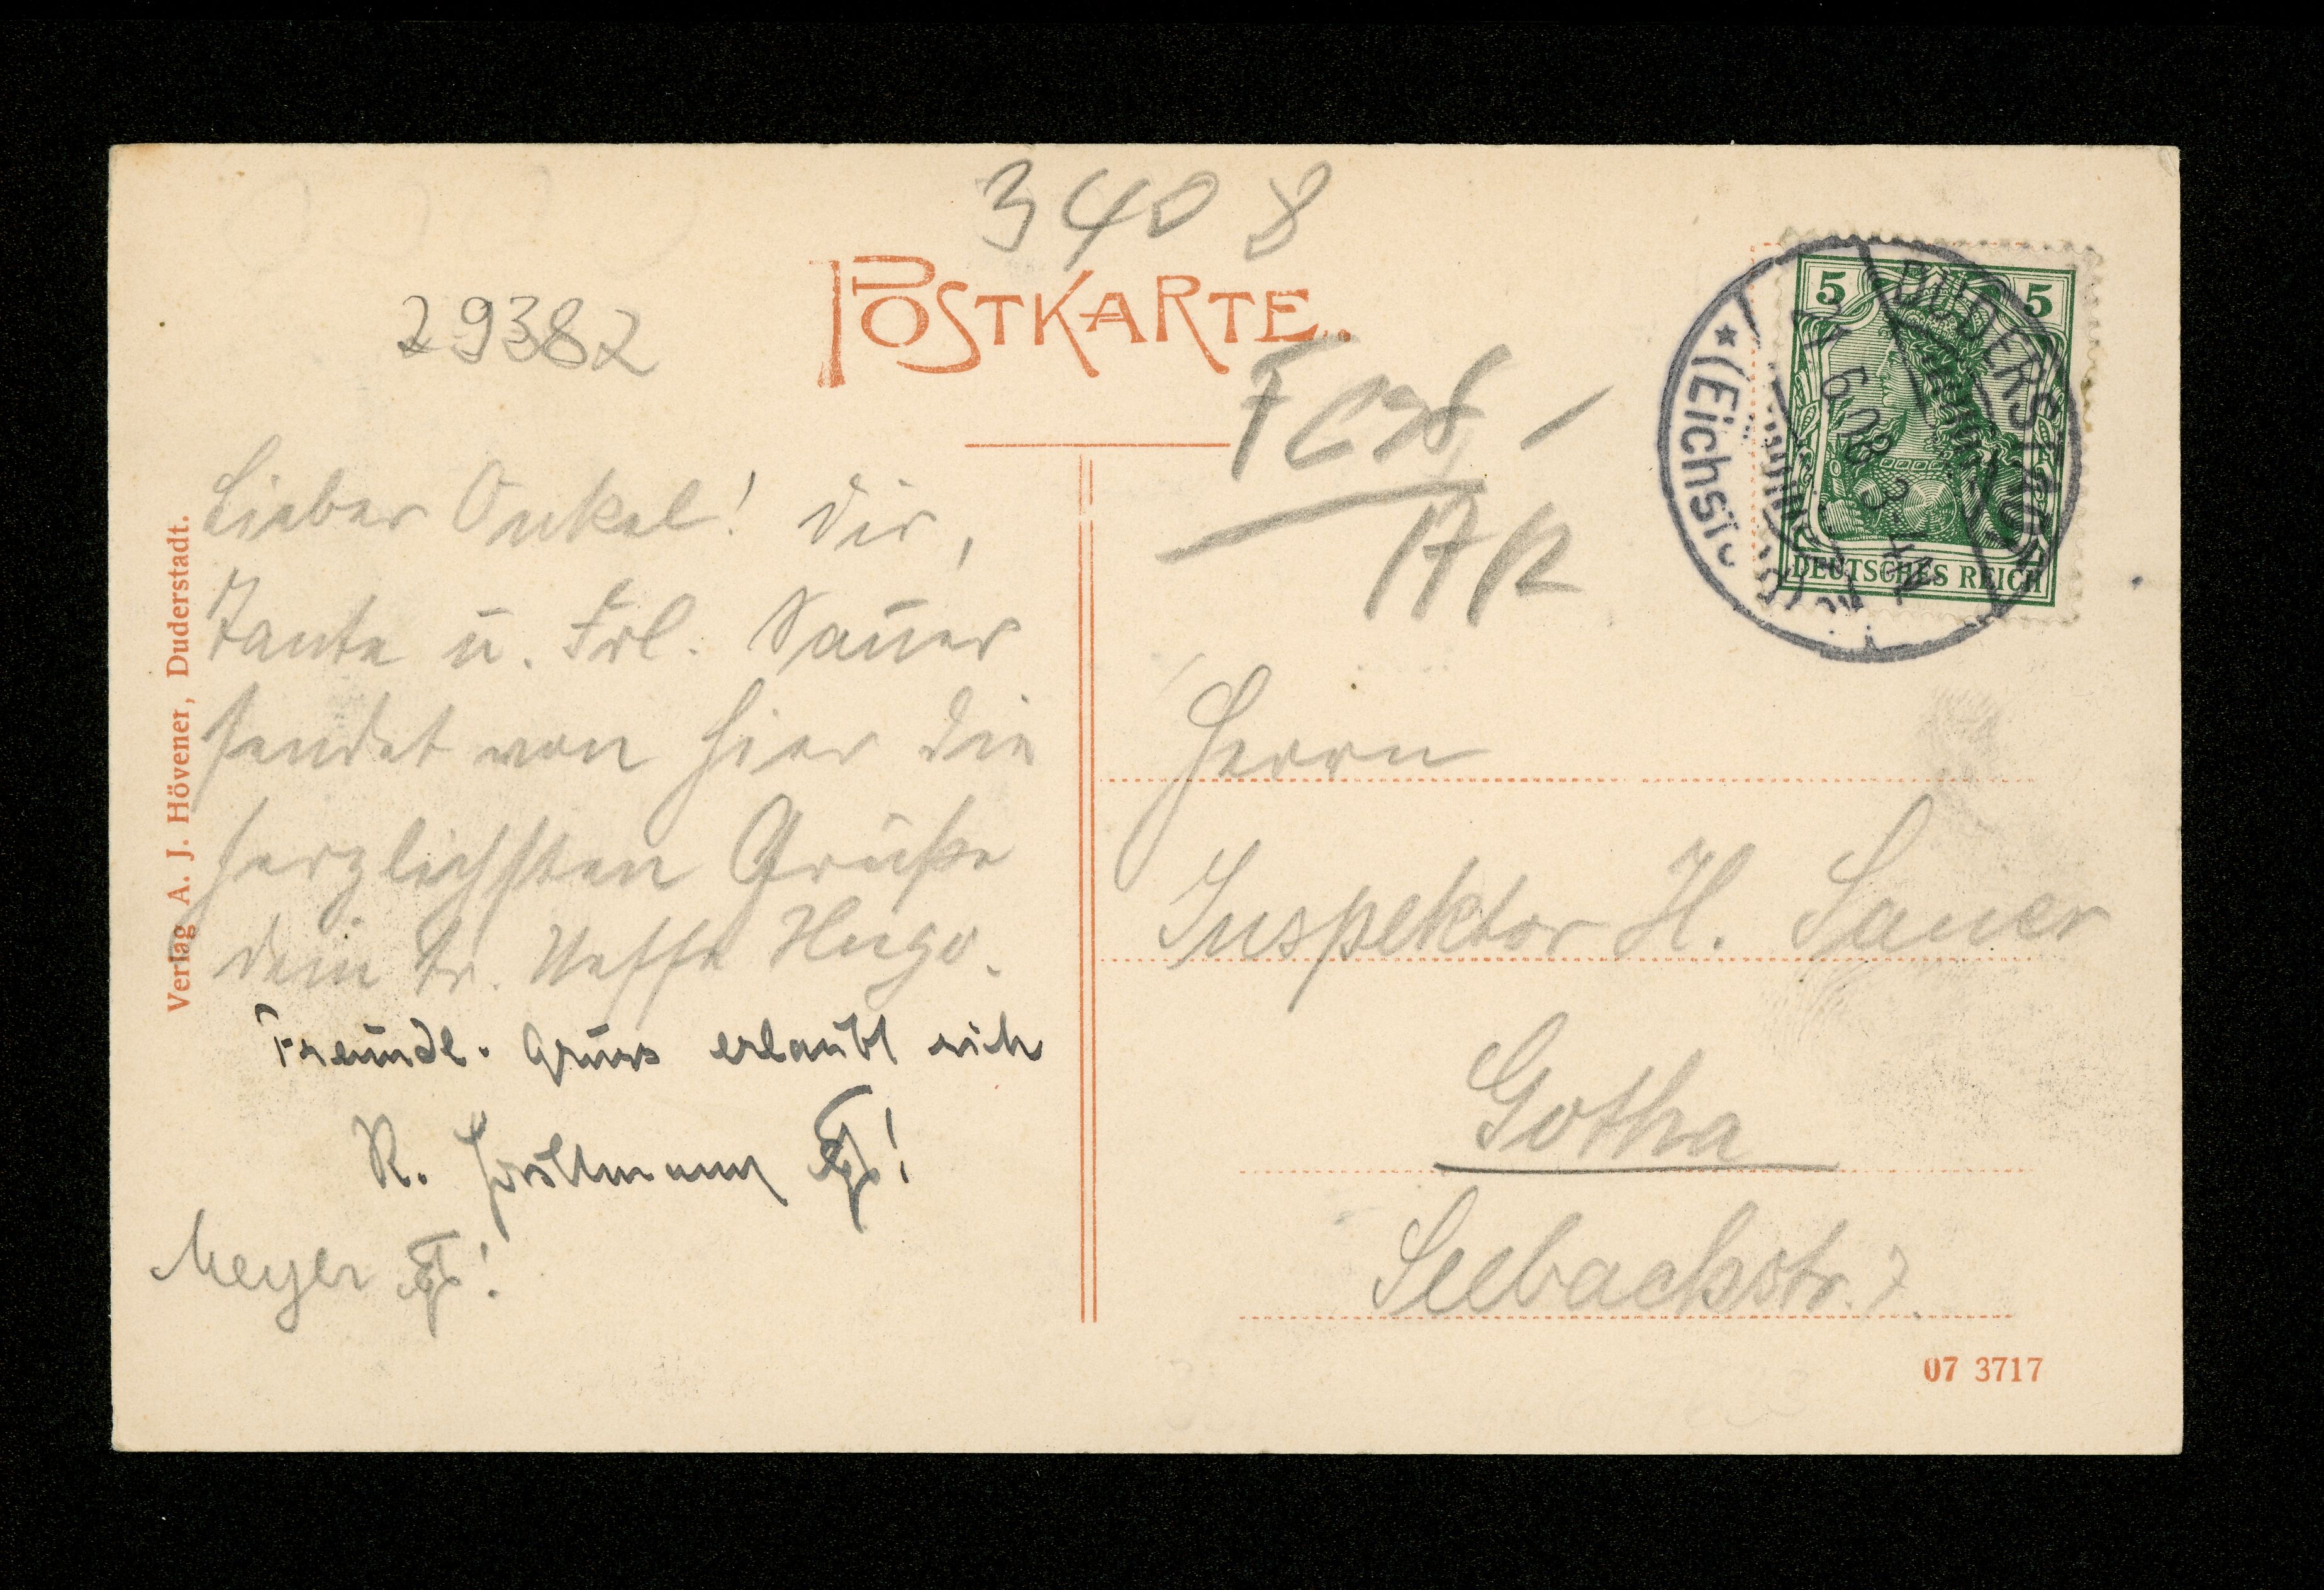 3408
29382
POSTKARTE.
Lieber Onkel! Dir,
Tante u. Frl. Sauer
sendet von hier die
herzlichsten Grüße
dein tr. Neffe Hugo.
Freundl. Gruss erlaubt sich
R. Forstmann
Meyer
Verlag A. J. Hövener, Duderstadt.
5 5
DEUTSCHES REICH
DUDERSTADT
* (Eichsf
6.08. 3-4N
Herrn
Inspektor H. Sauer
Gotha
Seebachstr. 7.
07 3717